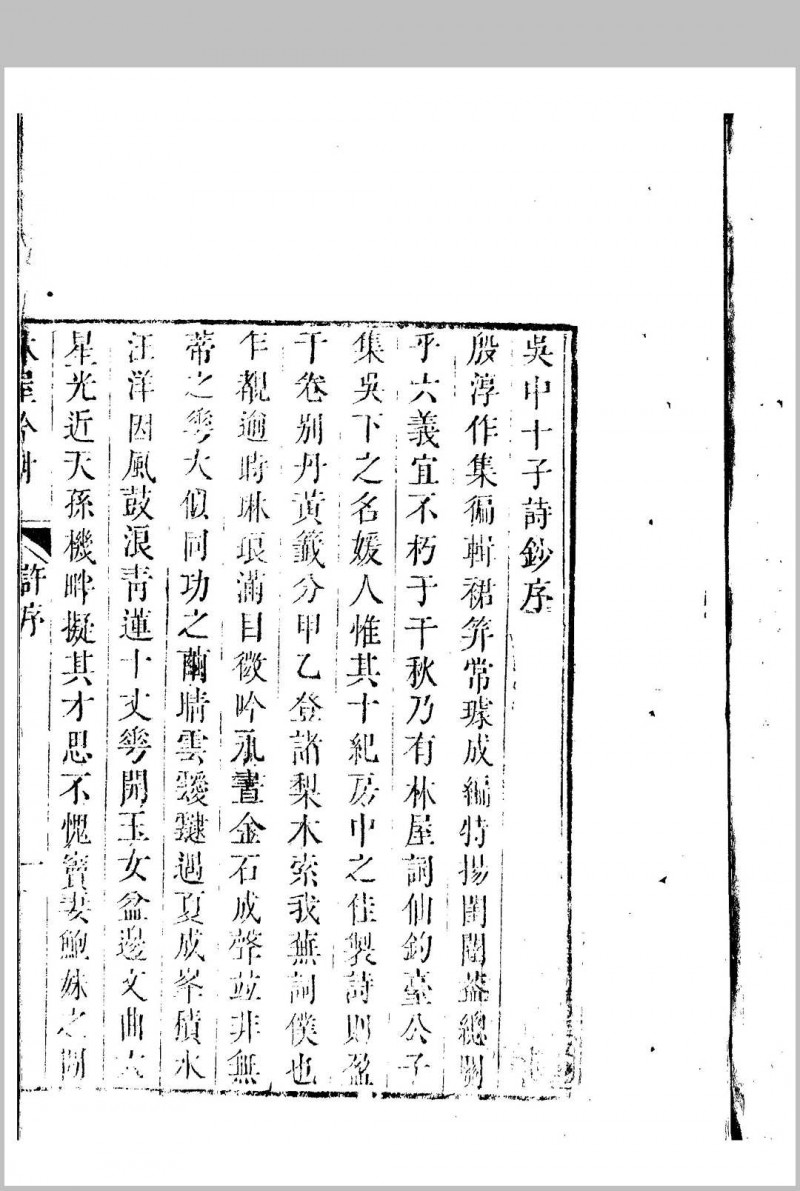 吳中十子詩鈔序
殷淳作集徧輯裙笄常璩成編特揚閨閫葢總關
乎六義宜不朽于千秋乃有林屋詞仙鈞臺公子
集吳下之名媛人惟其十紀房中之佳製詩則盈
千卷别丹黃籤分甲乙登諸梨木索我蕪詞僕也
乍覩逾時琳琅滿目微吟永晝金石成聲竝非無
蒂之蕚大似同功之繭晴雲靉靆遇夏成峯積水
汪洋因風鼓浪青蓮十丈蕚開玉女盆邊文曲六
星光近天孫機畔擬其才思不愧竇妻鮑妹之間
林屋吟
許序
一